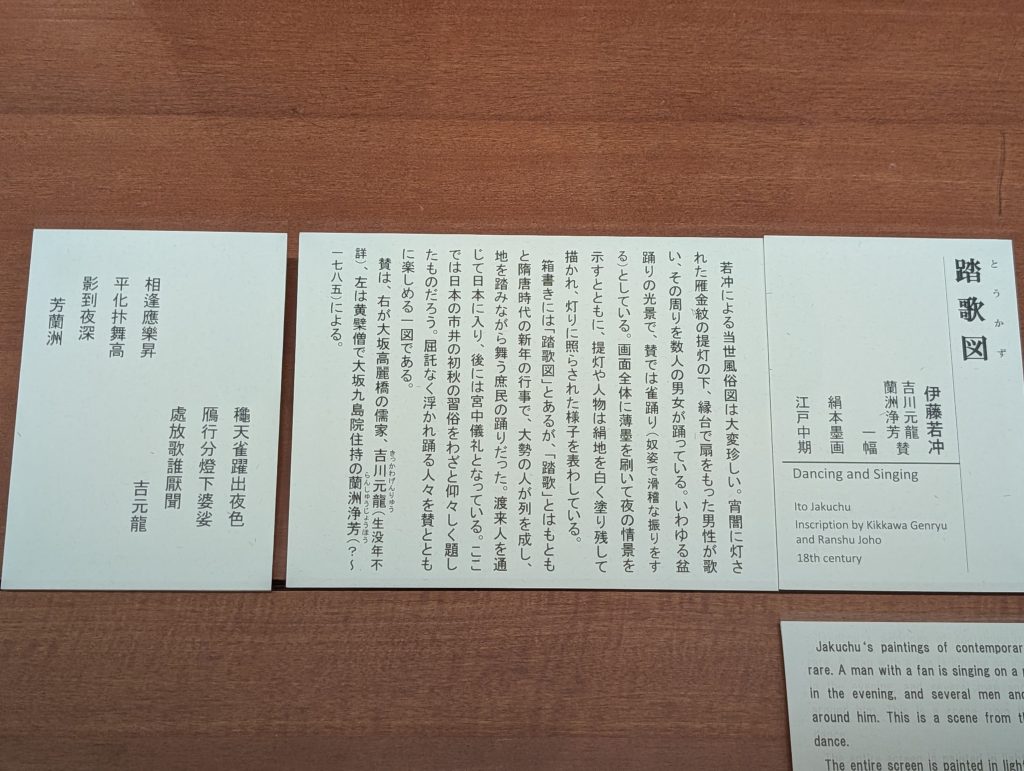 とうかず
踏歌図
伊藤若冲
吉川元龍
蘭洲浄芳 賛
一幅
絹本墨画
江戸中期
Dancing and Singing
Ito Jakuchu
Inscription by Kikkawa Genryu
and Ranshu Joho
18th century
若冲による当世風俗図は大変珍しい。宵闇に灯さ
れた雁金紋の提灯の下、縁台で扇をもった男性が歌
い、その周りを数人の男女が踊っている。いわゆる盆
踊りの光景で、賛では雀踊り（奴姿で滑稽な振りをす
る）としている。画面全体に薄墨を刷いて夜の情景を
示すとともに、提灯や人物は絹地を白く塗り残して
描かれ、灯りに照らされた様子を表わしている。
箱書きには「踏歌図」とあるが、「踏歌」とはもとも
と隋唐時代の新年の行事で、大勢の人が列を成し、
地を踏みながら舞う庶民の踊りだった。渡来人を通
じて日本に入り、後には宮中儀礼となっている。ここ
では日本の市井の初秋の習俗をわざと仰々しく題し
たものだろう。屈託なく浮かれ踊る人々を賛ととも
に楽しめる一図である。
賛は、右が大坂高麗橋の儒家、吉川元龍（生没年不
きっかわげんりゅう
詳）、左は黄檗僧で大坂九島院住持の蘭洲浄芳（？～
らんしゅうじょうほう
一七八五）による。
龝天雀躍出夜色
鴈行分燈下婆娑
處放歌誰厭聞
吉元龍
相逢應樂昇
平化抃舞高
影到夜深
芳蘭洲
Jakuchu's paintings of contemporar
rare. A man with a fan is singing on a
in the evening, and several men and
around him. This is a scene from t
dance.
The entire screen is painted in ligh